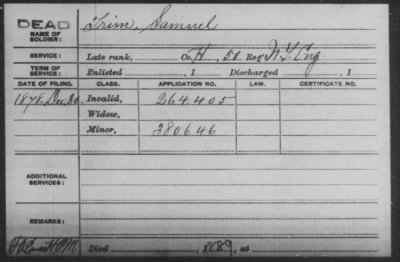 DEAD Trim, Samuel
NAME OF
SOLDIER:
SERVICE: Late rank, Co. H, 50 Reg't N.Y. Eng.
TERM OF
SERVICE: Enlisted , 1 Discharged , 1
DATE OF FILING. CLASS. APPLICATION NO. LAW. CERTIFICATE NO.
1878. Dec. 20. Invalid, 264.405
Widow,
Minor, 380646
ADDITIONAL
SERVICES:
REMARKS:
Died , 1889, at